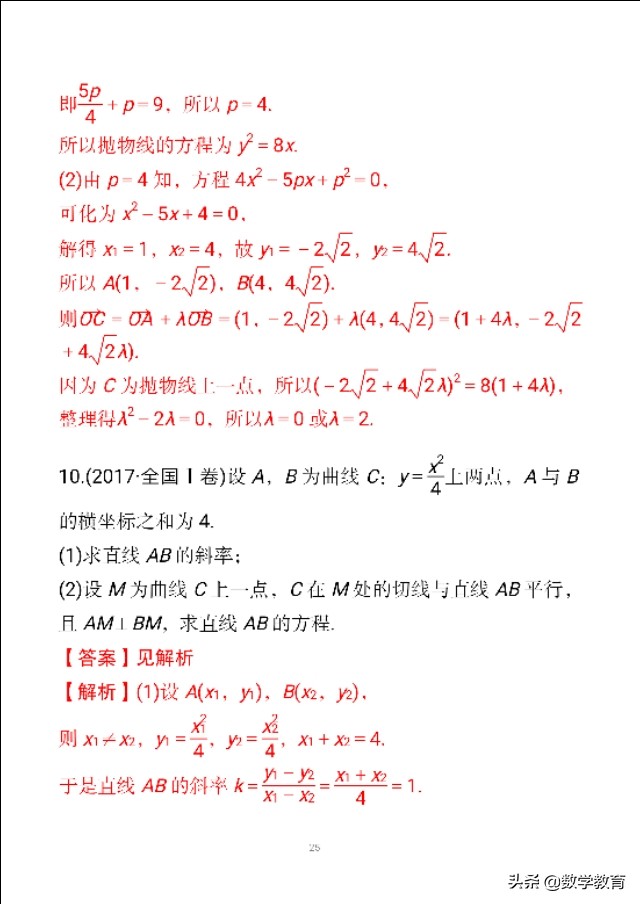 即5p/4+p=9，所以 p=4.
所以抛物线的方程为 y²=8x.
(2)由 p=4 知，方程 4x²-5px+p²=0，
可化为 x²-5x+4=0，
解得 x₁=1，x₂=4，故 y₁=-2√2，y₂=4√2.
所以 A(1，-2√2)，B(4，4√2).
则OC→=OA→+λOB→=(1，-2√2)+λ(4,4√2)=(1+4λ，-2√2
+4√2λ).
因为 C 为抛物线上一点，所以(-2√2+4√2λ)²=8(1+4λ)，
整理得λ²-2λ=0，所以λ=0 或λ=2.
10.(2017·全国Ⅰ卷)设 A，B 为曲线 C：y=x²/4上两点，A 与 B
的横坐标之和为 4.
(1)求直线 AB 的斜率；
(2)设 M 为曲线 C 上一点，C 在 M 处的切线与直线 AB 平行，
且 AM⊥BM，求直线 AB 的方程.
【答案】见解析
【解析】(1)设 A(x₁，y₁)，B(x₂，y₂)，
则 x₁≠x₂，y₁=x₁²/4，y₂=x₂²/4，x₁+x₂=4.
于是直线 AB 的斜率 k=(y₁-y₂)/(x₁-x₂)=(x₁+x₂)/4=1.
25
头条 @数学教育